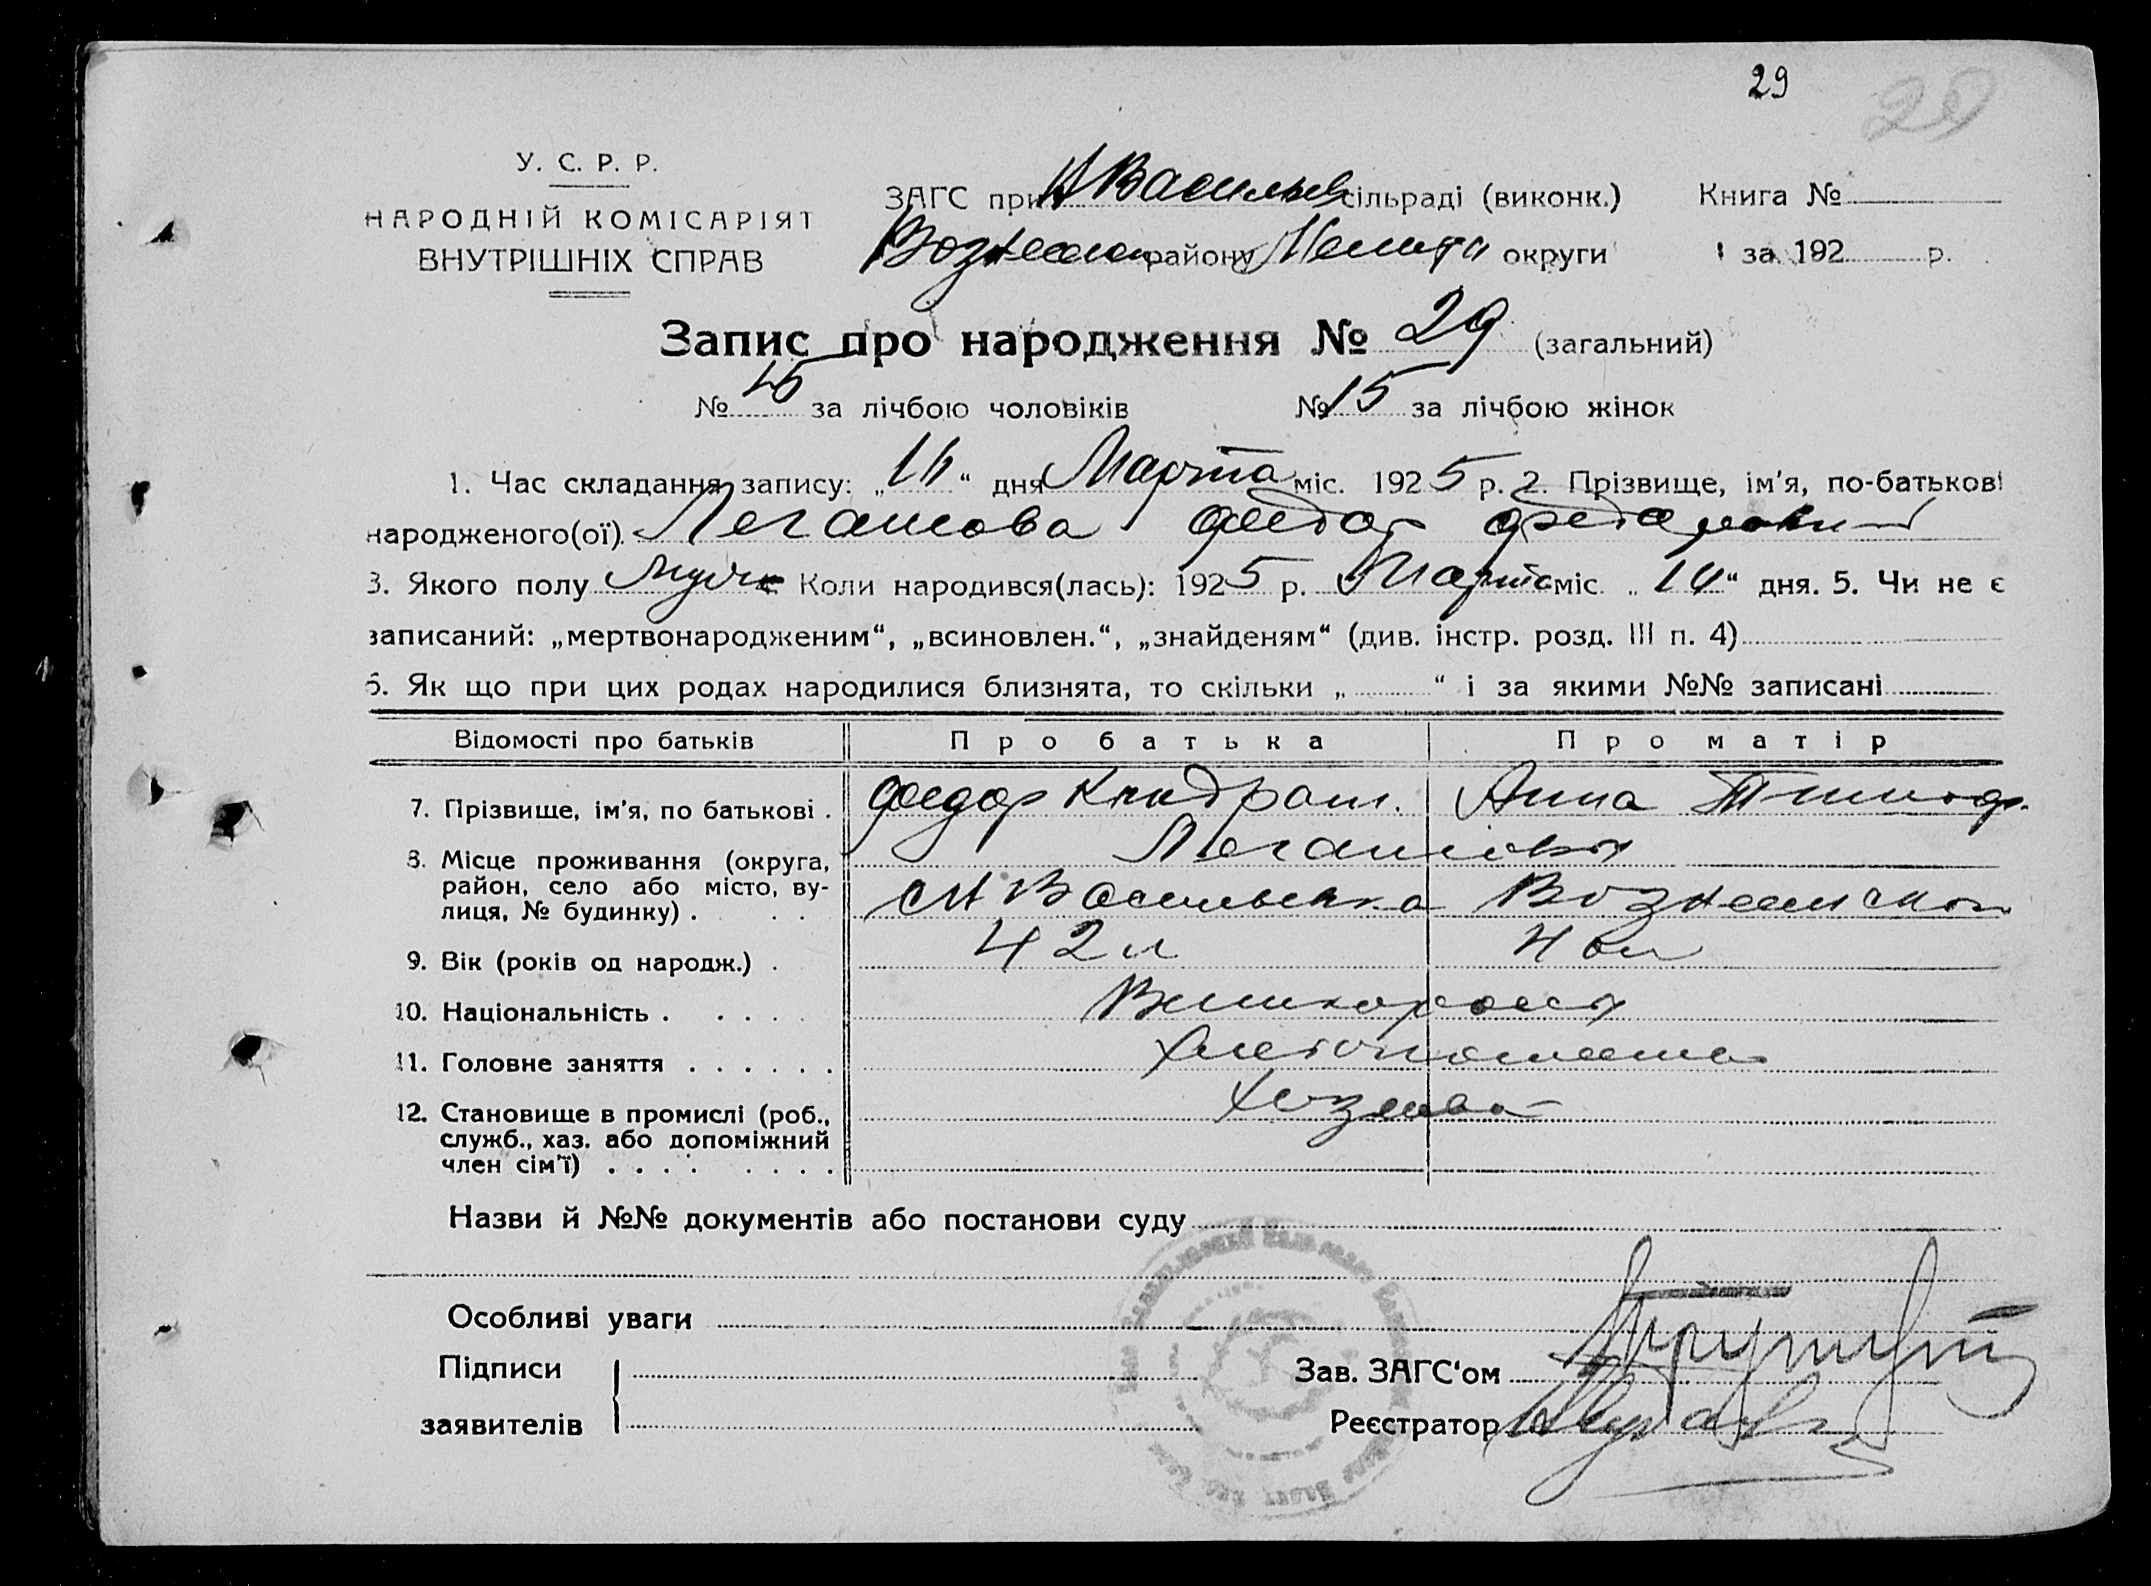 29
29
У. С. Р. Р.
НАРОДНІЙ КОМІСАРІЯТ
ВНУТРІШНІХ СПРАВ
ЗАГС при Н Васильев сільраді (виконк.) Книга №
району Мелито округи за 192 р.
Запис про народження № 29 (загальний)
№ за лічбою чоловіків № 15 за лічбою жінок
1. Час складання запису: „16“ дня Марта міс. 1925 р. 2. Прізвище, ім'я, по-батькові
народженого(ої) Федор Федорович
3. Якого полу Муж Коли народився(лась): 1925 р. Марта міс. „ “ дня. 5. Чи не є
записаний: „мертвонародженим“, „всиновлен.“, „знайденям“ (див. інстр. розд. III п. 4)
6. Як що при цих родах народилися близнята, то скільки „ “ і за якими №№ записані
Відомості про батьків Про батька Про матір
7. Прізвище, ім'я, по батькові . Федор Кондрат. Анна Тимоф.
8. Місце проживання (округа,
район, село або місто, ву-
лиця, № будинку) . . . Н Васильевка
9. Вік (років од народж.) . 42 л 40 л
10. Національність . . . . . Великоросы
11. Головне заняття . . . . . . Хлебопашество
12. Становище в промислі (роб.,
служб., хаз. або допоміжний
член сім'ї) . . . . . . . . Хозяева
Назви й №№ документів або постанови суду
Особливі уваги
Підписи
заявителів
Зав. ЗАГС‘ом
Реєстратор